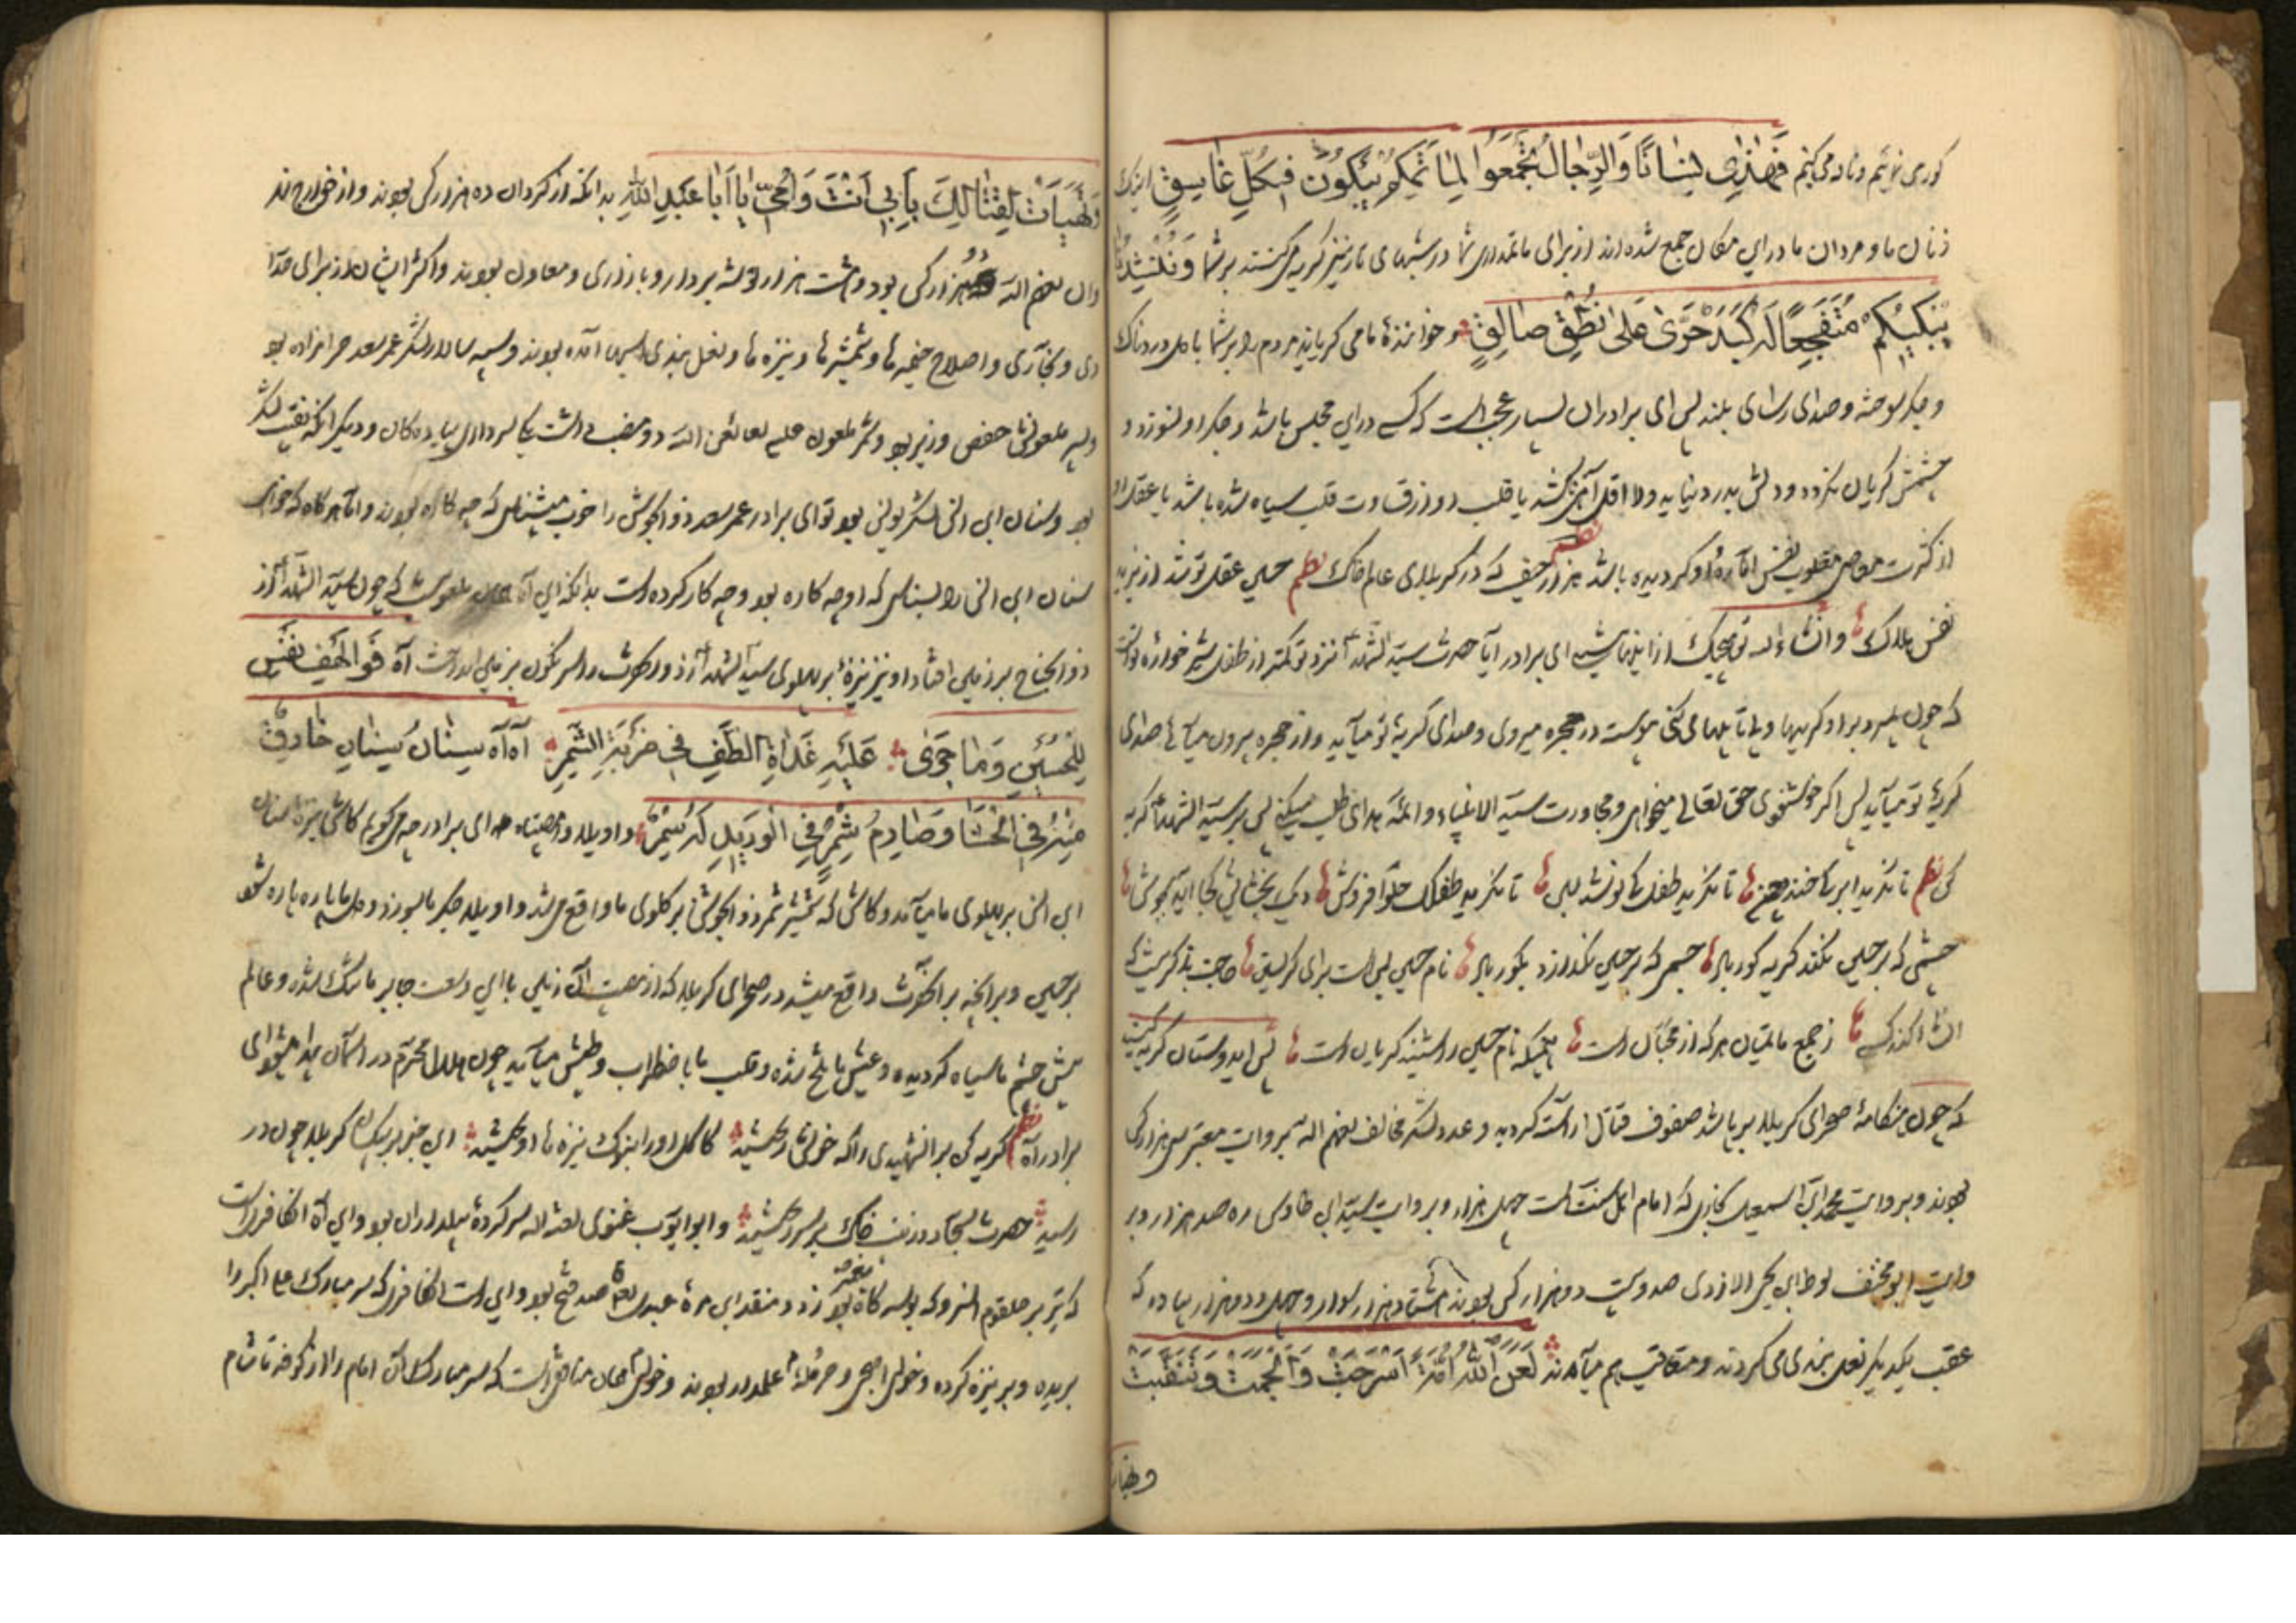 فهذي نساءنا والرجال تجمعوا لماتمكم يبكون في كل غاسق اینک
زنان ما و مردان ما در این مکان جمع شده اند از برای ماتمداری شما در شبهای تار نیز گریه می کنند بر شما
متفجعا له کبد حری علی نطق صالق و خواننده ما می گریاند مردم را بر شما با دل دردناک
و جگر سوخته و صدای رسای بلند پس ای برادران بسیار عجب است که کسی در این مجلس باشد و جگر او نسوزد و
چشمش گریان نگردد و دلش بدرد نیاید و لا اقل آهی نکشد یا قلب او از قساوت قلب سیاه شده باشد یا عقل او
از کثرت معاصی مغلوب نفس اماره او گردیده باشد هزار حیف که در کربلای عالم خاک نظم حسین عقل تو شد از یزید
نفس هلاک و انشاء الله تو هیچیک از اینها نیستی ای برادر آیا حضرت سید الشهدا نزد تو کمتر از طفل شیر خواره تو است
که چون بمیرد بر او گریه ها و بی تابیها می کنی پیوسته در حجره میروی و صدای گریه تو میآید و از حجره بیرون میآئی صدای
گریه تو میآید پس اگر خوشنودی حق تعالی میخواهی و مجاورت سید الانبیاء و ائمه هدای طلب میکنی پس بر سید الشهدا گریه
کن نظم تا نگرید ابر کی خندد چمن تا نگرید طفل کی نوشد لبن تا نگرید طفلک حلوا فروش دیک بخشایش کجا آید بجوش
چشمی که بر حسین نکند گریه کور به جسمی که بر حسین نگدازد بگور به نام حسین بس است برای گریستن حاجت بذکر نیست که
انشا کند کسی ز جمع ماتمیان هر که از محبان است همینکه نام حسین را شنید گریان است پس ایدوستان گریه کنید
که چون هنگامه صحرای کربلا بر پا شد صفوف قتال آراسته گردید و عدد لشکر مخالف لعنهم الله بروایت معتبر سی هزار کس
بودند و بروایت محمد ابن اسمعیل بخاری که امام اهل سنت است چهل هزار و بروایت سید ابن طاوس ره صد هزار و بر
وایت ابو مخنف لوط ابن یحیی الازدی صد و بیست دو هزار کس بودند هشتاد هزار سوار و چهل و دو هزار پیاده که
عقب یکدیگر نعل بندی می کردند و متعاقب هم میآمدند لعن الله امة اسرجت و الجمت و تنقبت
و تهیأت
و تهیأت لقتالك بابي انت و امي يا ابا عبد الله بدانکه از کردان ده هزار کس بودند و از خوارج
هزار کس بود و هشت هزار توشه بردار و بازاری و معاون بودند و اکثر ایشان از برای حدا
دی و نجاری و اصلاح خیمه ها و شمشیرها و نیزه ها و نعل بندی اسبها آمده بودند و سپه سالار لشکر عمر سعد حرامزاده بو
و پسر ملعونش حفص وزیر بود و شمر ملعون علیه لعائن الله دو منصب داشت یکی سرداری پیاده کان و دیگر آنکه نقیب لشکر
بود و سنان ابن انس لشکر نویس بود تو ای برادر عمر سعد ذو الجوشن را خوب میشناسی که چه کاره بودند و اما هرگاه که خواهی
سنان ابن انس را بشناسی که او چه کاره بود و چه کار کرده است بدانکه این آن ملعونست که چون سید الشهدا از
ذو الجناح بر زمین افتاد او نیز نیزه بر پهلوی سید الشهدا زد و انحضرت را سرنگون بر زمین انداخت آه فوا لهف نفسی
للحسين و ما جرى عليه غداة الطف في ضربة الشمر آه آه سنان سنان خارق
منه في الحشا و صارم شمر في الوريد له شمر و اویلا و امصیبتاه ای برادر چه می گویم کاش نیزه سنان
ابن انس بر پهلوی ما میآمد و کاش که شمشیر شمر ذو الجوشن بر گلوی ما واقع می شد و اویلا جگر ما بسوزد و دل ما پاره پاره شود
بر حسین و بر آنچه بر آنحضرت واقع میشد در صحرای کربلا که از مصیبت آن زمین با این وسعت جا بر ما تنگ شده و عالم
پیش چشم ما سیاه گردیده و عیش ما تلخ شده و قلب ما با ضطراب و طپش میآید چون هلال محرم در آسمان پیدا میشود ای
برادر آه نظم گریه کن بر آن شهیدی را که خونش ریختند کاکل او را بنوک نیزه ها آویختند این خبر بر ساکنان کربلا چون در
رسید حضرت سجاد و زینب خاک بر سر ریختند و ابو ایوب غنوی لعنه الله سر کرده بیلداران بود و این آن کافر است
که تیر بر حلقوم انسرور که بوسه گاه پیغمبر بود زد و منقذ ابن مره عبدی لعین صد فتح بود و این است آن کافری که سر مبارک علی اکبر را
بریده و بر نیزه کرده و خولی اصبحی و حرمله علمدار بودند و خولی همان منافق است که سر مبارک آن امام را از کوفه تا شام